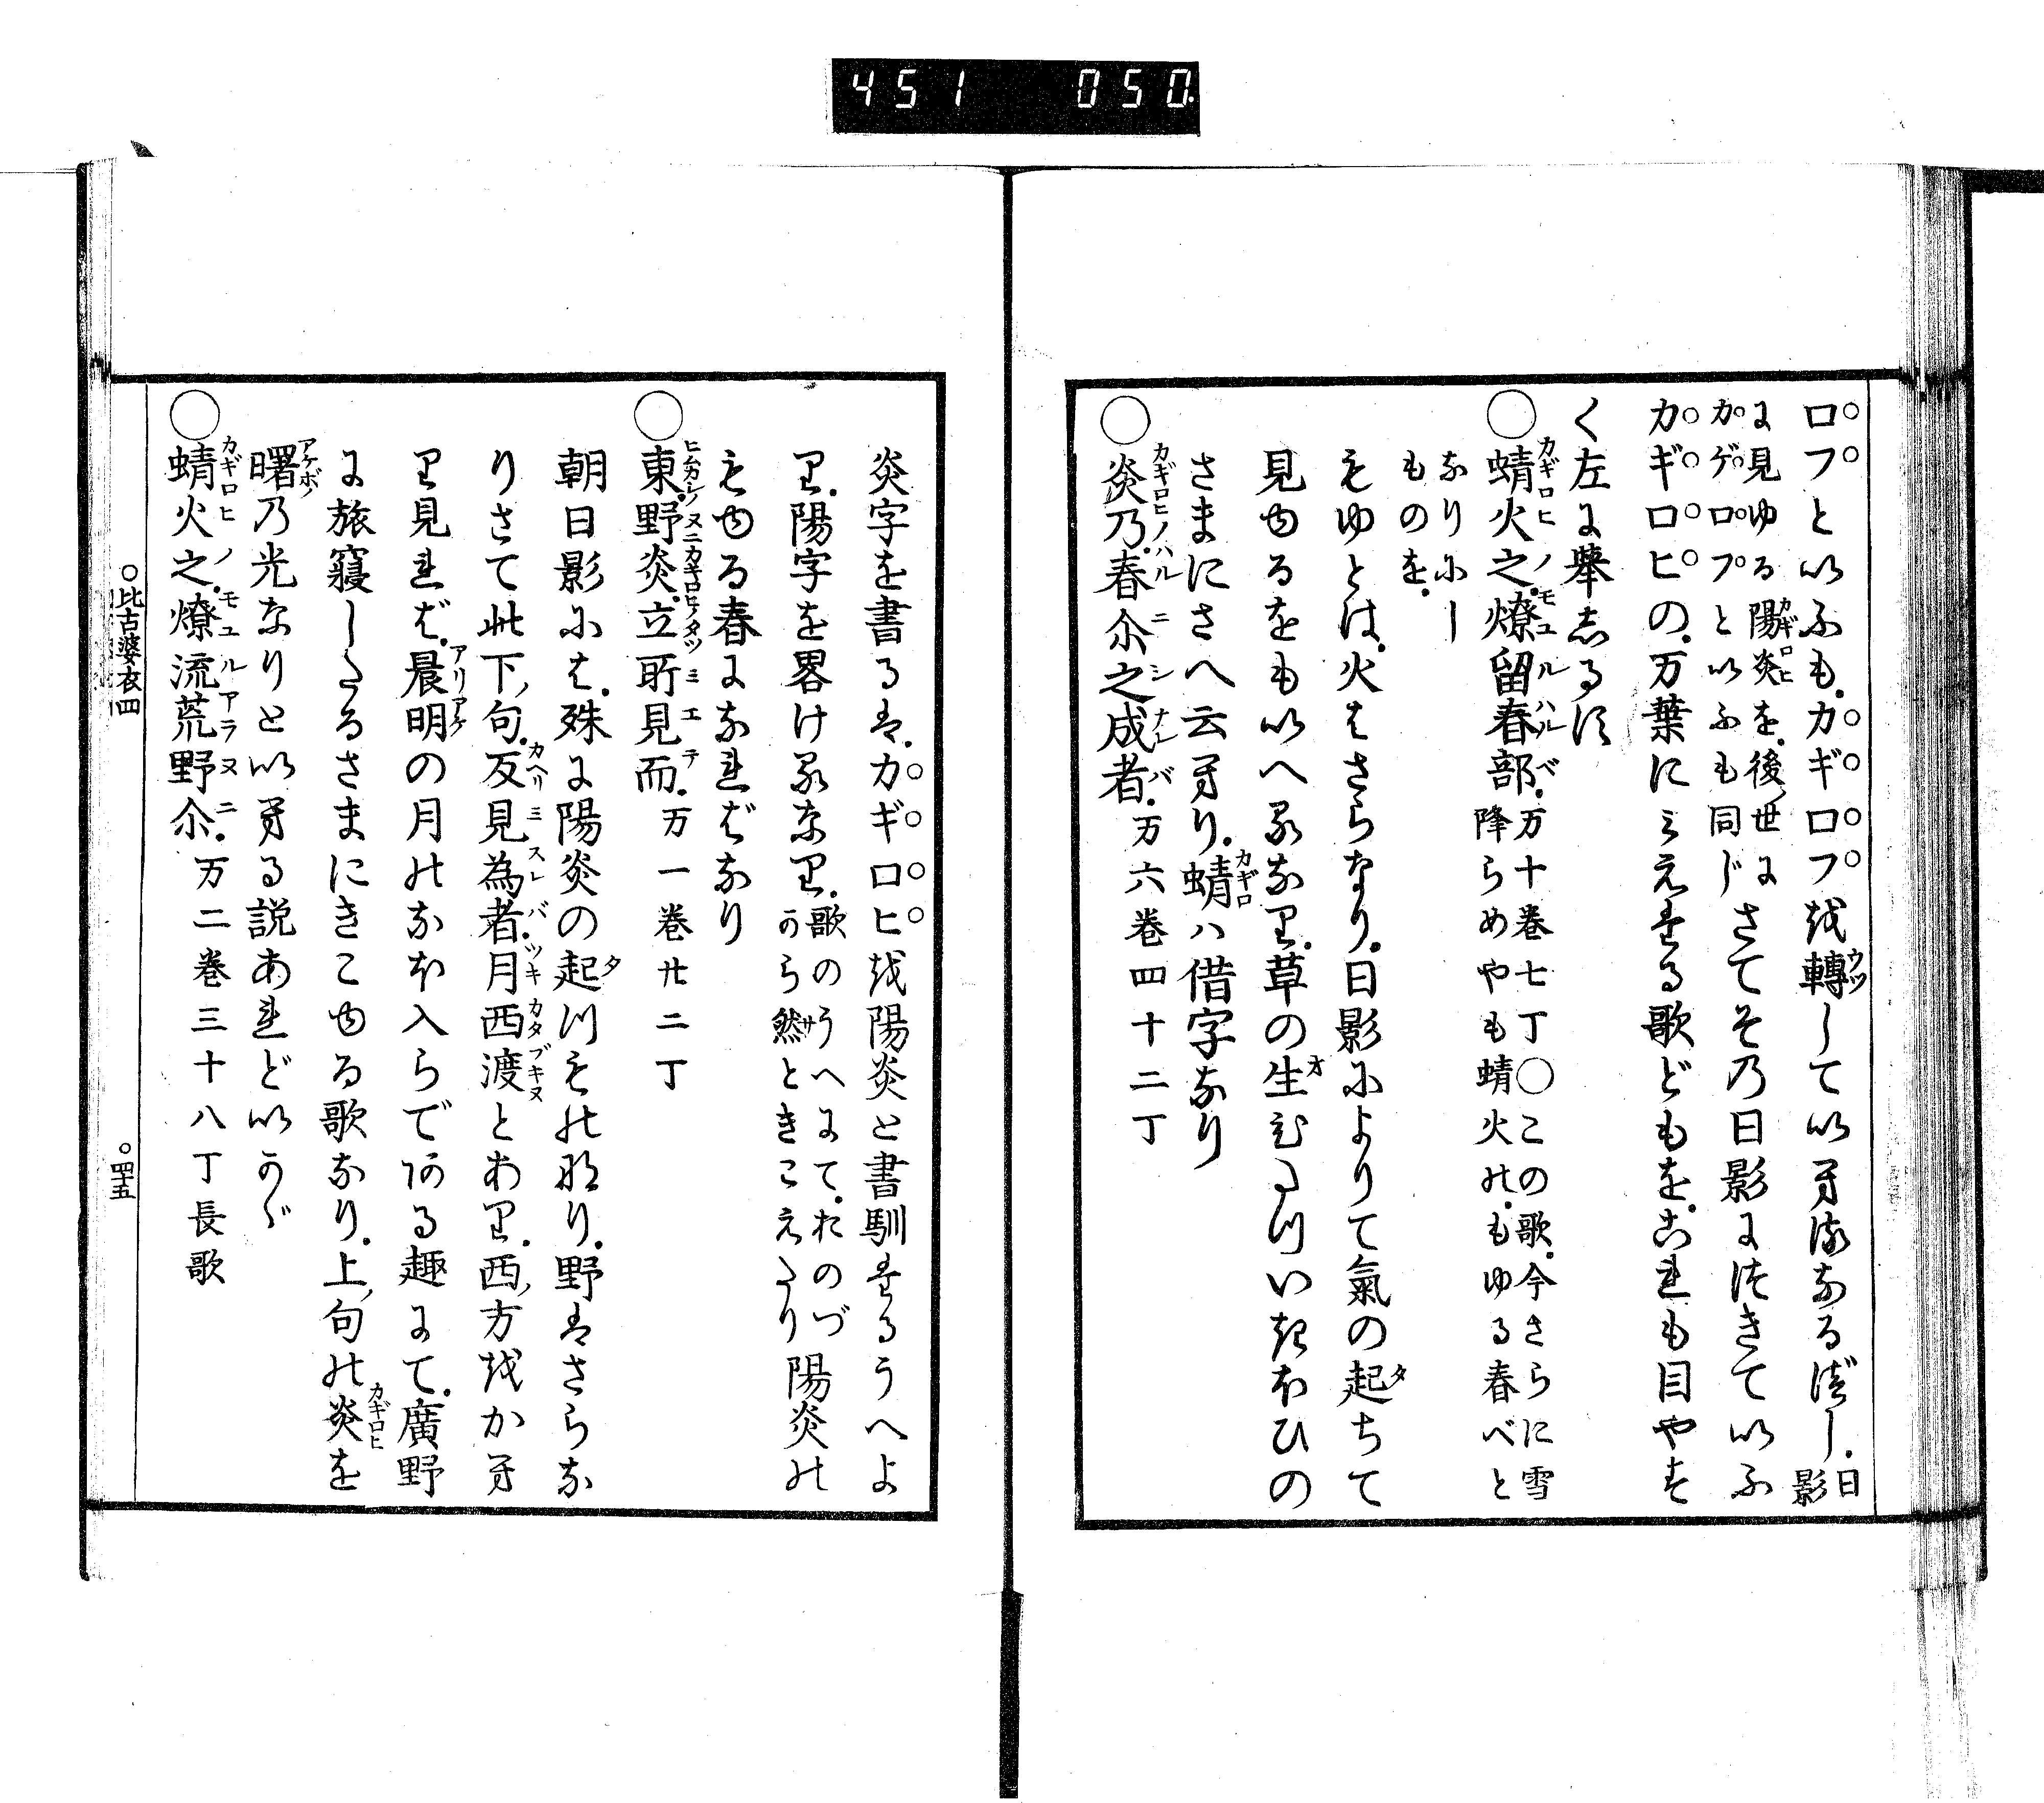 451 050
ロフといふも。カギロフを轉して以へるなるべし。日影
に見ゆる陽炎を。後世に
カゲロフといふも同じ
さてその日影につきていふ
カギロヒの。万葉にみえたる歌どもを。これも目やす
く左に擧しるす
○蜻火之。燎留春部。万十巻七丁○この歌。今さらに雪
降らめやも蜻火の。もゆる春べと
なりにし
ものを。
もゆとは。火はさらなり。日影によりて氣の起ちて
見ゆるをもいへるなり。草の生むたついきほひの
さまにさへ云へり。蜻ハ借字なり
○炎乃。春尓之成者。万六巻四十二丁
炎字を書るは。カギロヒを陽炎と書馴たるうへよ
り。陽字を畧けるなり。歌のうへにて。おのづ
から然ときこえたり
陽炎の
もゆる春になればなり
○東。野炎。立所見而。万一巻廿二丁
朝日影には。殊に陽炎の起つものなり。野はさらな
りさて此下ノ句。反見為者。月西渡とあり。西ノ方をかへ
り見れば。晨明の月のなほ入らである趣にて。廣野
に旅寢したるさまにきこゆる歌なり。上ノ句の炎を
曙乃光なりといへる説あれどいかゞ
○蜻火之。燎流荒野尓。万二巻三十八丁長歌
○比古婆衣四
○四十五